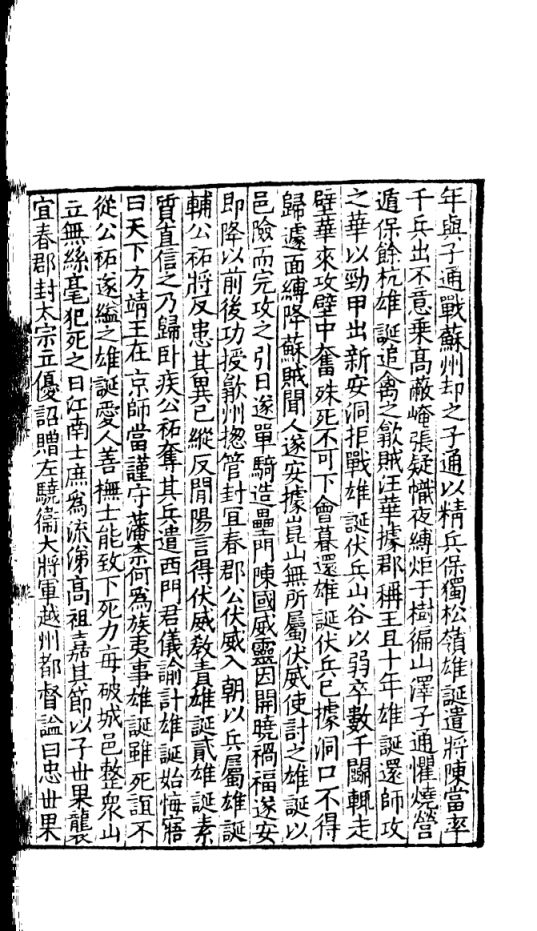 年與子通戰蘇州却之子通以精兵保獨松嶺雄誕遣將陳當率
千兵出不意乗髙蔽崦張疑幟夜縛炬于樹徧山澤子通懼燒營
遁保餘杭雄誕追禽之歙賊汪華據郡稱王且十年雄誕還師攻
之華以勁甲出新安洞拒戰雄誕伏兵山谷以弱卒數千鬬輒走
壁華來攻壁中奮殊死不可下會暮還雄誕伏兵已據洞口不得
歸遽面縛降蘇賊聞人遂安據崑山無所屬伏威使計之雄誕以
邑險而完攻之引日遂單騎造壘門陳國威靈因開曉禍福遂安
即降以前後功授歙州揔管封宜春郡公伏威入朝以兵屬雄誕
輔公祏將反患其異己縱反閒陽言得伏威敎責雄誕貳雄誕素
質直信之乃歸卧疾公祏奪其兵遣西門君儀諭計雄誕始悔寤
曰天下方靖王在京師當謹守藩柰何爲族夷事雄誕雖死誼不
從公祏遂縊之雄誕愛人善撫士能致下死力每破城邑整衆山
立無絲毫犯死之日江南士庶爲流涕髙祖嘉其節以子世果襲
宜春郡封太宗立優詔贈左驍衞大將軍越州都督謚曰忠世果